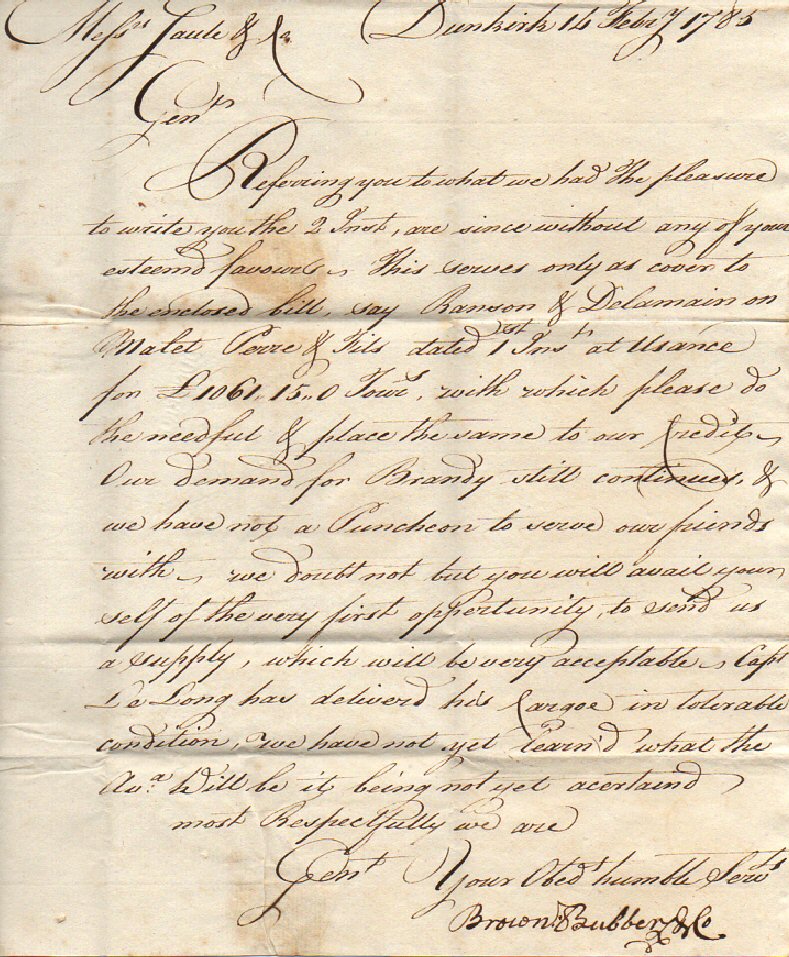 Messrs Jaule & Co Dunkirk 14 Febry 1785
Gents
Referring you to what we had the pleasure
to write you the 2 Inst, are since without any of your
esteemd favours. This serves only as cover to
the enclosed bill, say Ranson & Delamain on
Malet Perre & Fils dated 1st Inst at Usance
for £1061,,15,,0 Tours, with which please do
the needful & place the same to our Credit.
Our demand for Brandy still continues, &
we have not a Puncheon to serve our friends
with. we doubt not but you will avail your
self of the very first opportunity, to send us
a supply, which will be very acceptable. Capt
Le Long has deliverd his Cargoe in tolerable
condition, we have not yet learn'd what the
Ava. Will be it being not yet acertaind
most Respectfully we are
Gents Your Obedt humble Servts
Brown Bubber & Co